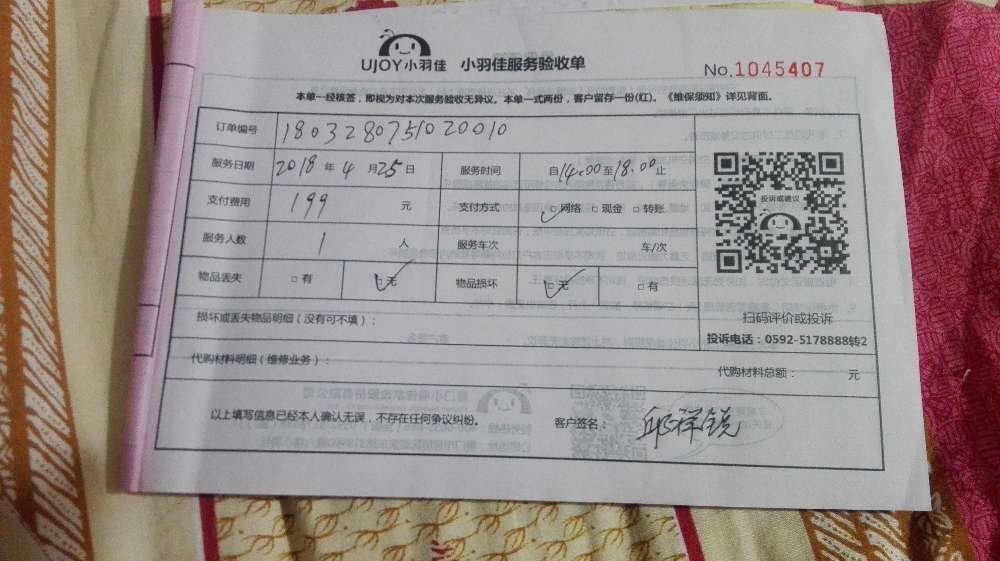 UJOY小羽佳 小羽佳服务验收单
No.1045407
本单一经核签，即视为对本次服务验收无异议。本单一式两份，客户留存一份(红)。《维保须知》详见背面。
订单编号 180328075102001０
服务日期 2018 年 4 月 25 日 服务时间 自14:00至18:00止
支付费用 199 元 支付方式 □网络 □现金 □转账
投诉或建议
服务人数 1 人 服务车次 车/次
物品丢失 □有 □无 物品损坏 □无 □有
损坏或丢失物品明细（没有可不填）：
扫码评价或投诉
投诉电话：0592-5178888转2
代购材料明细（维修业务）：
代购材料总额： 元
以上填写信息已经本人确认无误，不存在任何争议纠纷。 客户签名：